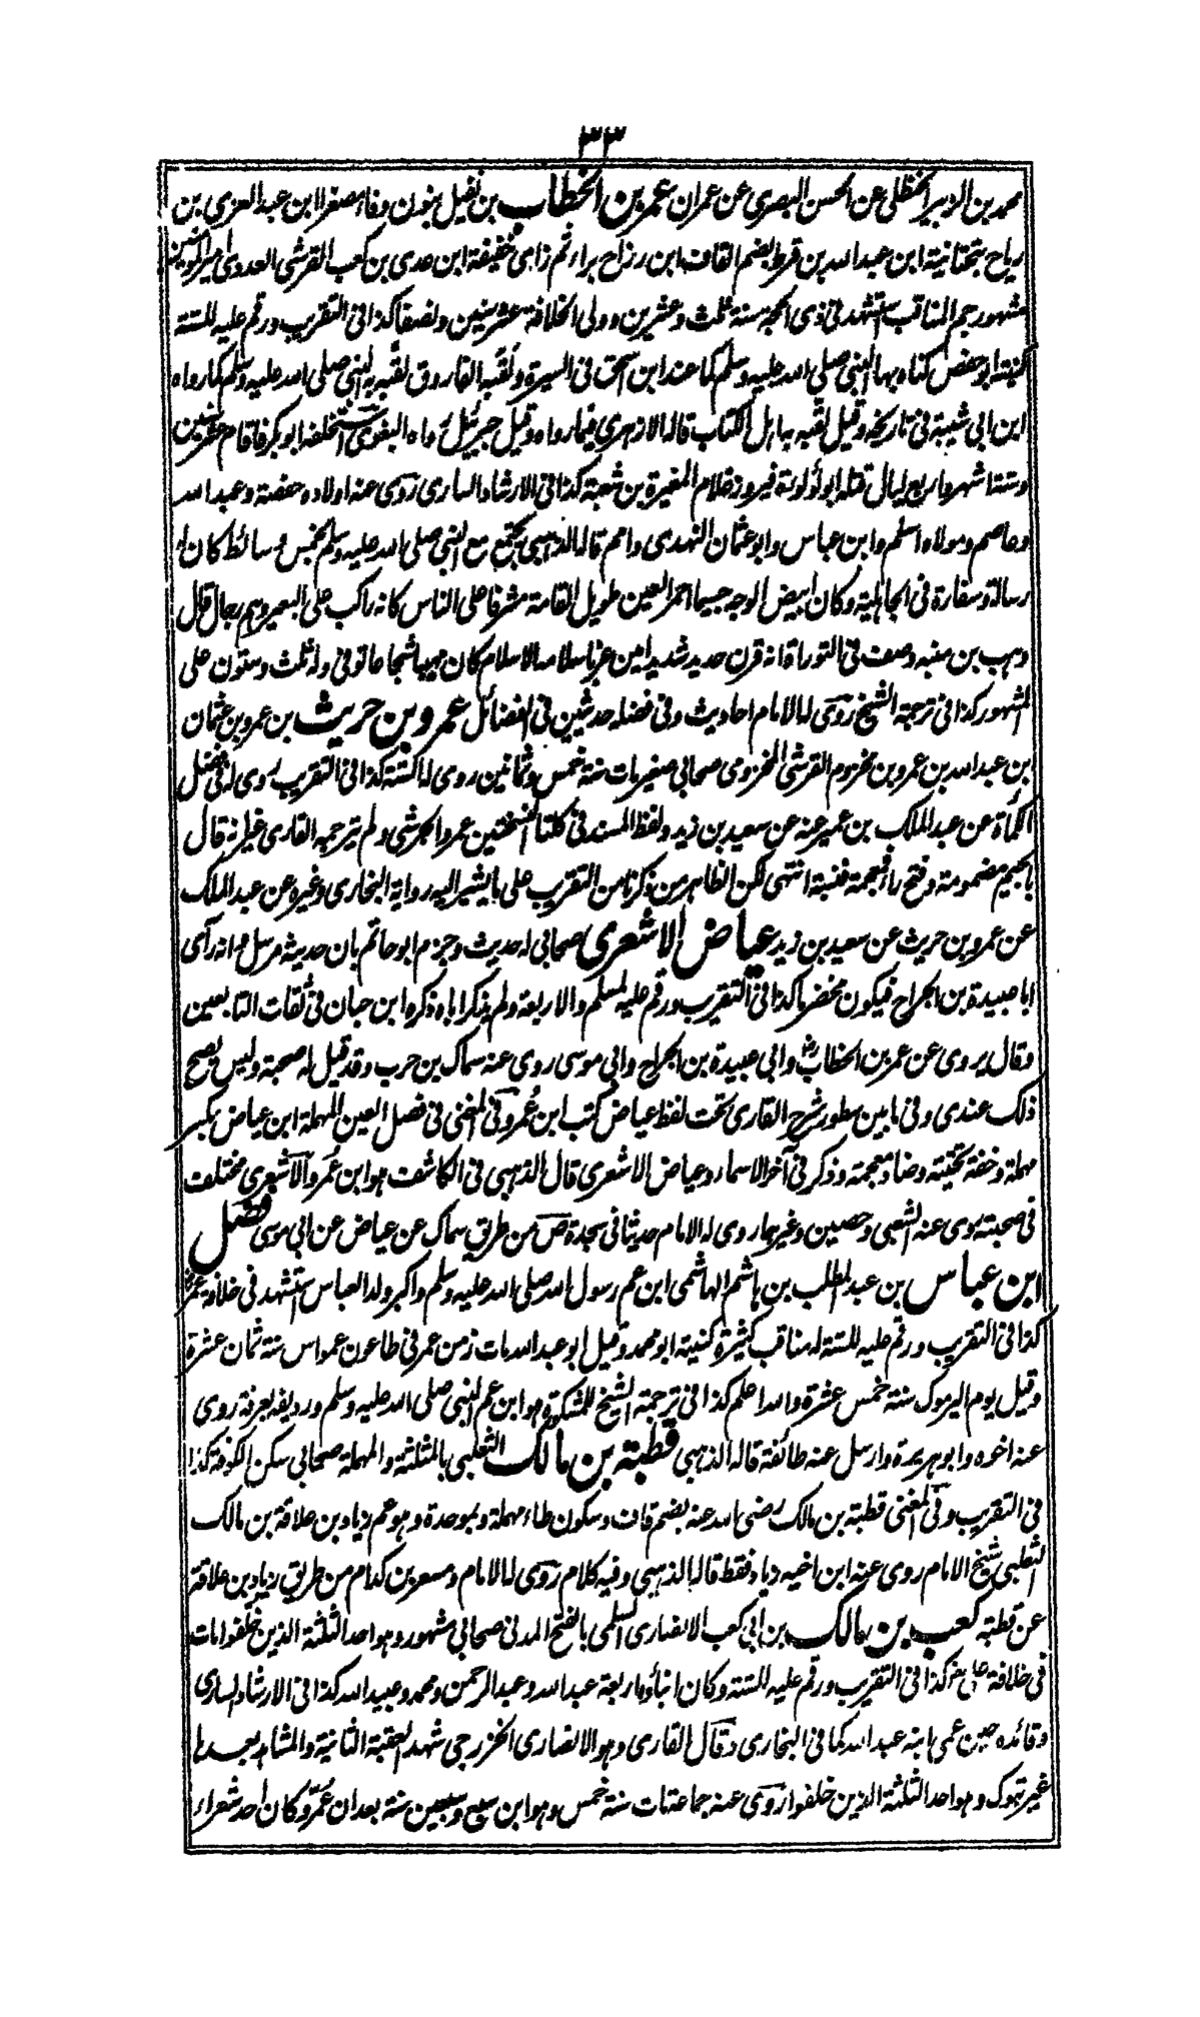 ٣٣
محمد بن الزبير الحنظلي عن الحسن البصري عن عمران عمر بن الخطاب بن نفيل بنون وفاء مصغرا ابن عبد العزى بن
رياح بتحتانية ابن عبد الله بن قرط بضم القاف ابن رزاح براء ثم زاي خفيفة ابن عدي بن كعب القرشي العدوي امير المؤمنين
مشهور جم المناقب استشهد في ذي الحجة سنة ثلث وعشرين وولي الخلافة عشر سنين ونصفا كذا في التقريب ورقم عليه للستة
كنيته ابو حفص كناه بها النبي صلى الله عليه وسلم كما عند ابن اسحق في السيرة ولقبه الفاروق لقبه به النبي صلى الله عليه وسلم كما رواه
ابن ابي شيبة في تاريخه وقيل لقبه به اهل الكتاب قاله الازهري فيما رواه وقيل جبرئيل رواه البغوي استخلفه ابو بكر فاقام عشر سنين
وستة اشهر واربع ليال قتله ابو لؤلؤة فيروز غلام المغيرة بن شعبة كذا في الارشاد الساري روى عنه اولاده حفصة وعبد الله
وعاصم ومولاه اسلم وابن عباس وابو عثمان النهدي وامم قاله الذهبي يجتمع مع النبي صلى الله عليه وسلم بخمس وسائط كان له
رسالة وسفارة في الجاهلية وكان ابيض الوجه جسيما احمر العين طويل القامة مشرفا على الناس كانه راكب على البعير وهم رجال قال
وهب بن منبه وصف في التوراة انه قرن حديد شديد امين عز باسلامه الاسلام كان مهيبا شجاعا توفي وله ثلث وستون على
المشهور كذا في ترجمة الشيخ روى له الامام احاديث وفي فضله حديثين في الفضائل عمرو بن حريث بن عمرو بن عثمان
ابن عبد الله بن عمرو بن مخزوم القرشي المخزومي صحابي صغير مات سنة خمس وثمانين روى له الستة كذا في التقريب روى له في فضل
الكمأة عن عبد الملك بن عمير عنه عن سعيد بن زيد ولفظ المسند في كلتا النسختين عمرو الجرشي ولم يترجمه القاري غير انه قال
بالجيم مضمومة وفتح راء فمعجمة فنسبة انتهى لكن الظاهر من ذكرنا من التقريب على ما يشير اليه رواية البخاري وغيره عن عبد الملك
عن عمرو بن حريث عن سعيد بن زيد عياض الاشعري صحابي له حديث وجزم ابو حاتم بان حديثه مرسل وانه رأى
ابا عبيدة بن الجراح فيكون مخضرما كذا في التقريب ورقم عليه لمسلم والاربعة ولم يذكر اباه ذكره ابن حبان في ثقات التابعين
وقال يروي عن عمر بن الخطاب وابي عبيدة بن الجراح وابي موسى روى عنه سماك بن حرب وقد قيل له صحبة وليس يصح
ذلك عندي وفي ما بين سطور شرح القاري تحت لفظ عياض كتب ابن عمرو وفي المغني في فصل العين المهملة ابن عياض بكسر
مهملة وخفة تحتية وضاد معجمة وذكر في آخر الاسماء وعياض الاشعري قال الذهبي في الكاشف هو ابن عمرو الاشعري مختلف
في صحبته روى عنه الشعبي وحصين وغيرهما روى له الامام حديثا في سجدة ص من طريق سماك عن عياض عن ابي موسى فضل
ابن عباس بن عبد المطلب بن هاشم الهاشمي ابن عم رسول الله صلى الله عليه وسلم واكبر ولد العباس استشهد في خلافة عمر
كذا في التقريب ورقم عليه للستة له مناقب كثيرة كنيته ابو محمد وقيل ابو عبد الله مات زمن عمر في طاعون عمواس سنة ثمان عشرة
وقيل يوم اليرموك سنة خمس عشرة والله اعلم كذا في ترجمة الشيخ للمشكوة هو ابن عم النبي صلى الله عليه وسلم ورديفه بعرفة روى
عنه اخوه وابو هريرة وارسل عنه طائفة قاله الذهبي قطبة بن مالك الثعلبي بالمثلثة والمهملة صحابي سكن الكوفة كذا
في التقريب وفي المغني قطبة بن مالك رضي الله عنه بضم قاف وسكون طاء مهملة وبموحدة وهو عم زياد بن علاقة بن مالك
الثعلبي شيخ الامام روى عنه ابن اخيه زياد فقط قاله الذهبي وفيه كلام روى له الامام ومسعر بن كدام من طريق زياد بن علاقة
عن قطبة كعب بن مالك بن ابي كعب الانصاري السلمي بالفتح المدني صحابي مشهور وهو احد الثلثة الذين خلفوا مات
في خلافة علي كذا في التقريب ورقم عليه للستة وكان ابناؤه اربعة عبد الله وعبد الرحمن ومحمد وعبيد الله كذا في الارشاد الساري
وقائده حين عمي ابنه عبد الله كما في البخاري وقال القاري وهو الانصاري الخزرجي شهد العقبة الثانية والمشاهد بعدها
غير تبوك وهو احد الثلثة الذين خلفوا روى عنه جماعة مات سنة خمس وهو ابن سبع وسبعين سنة بعد ان عمي وكان احد شعراء